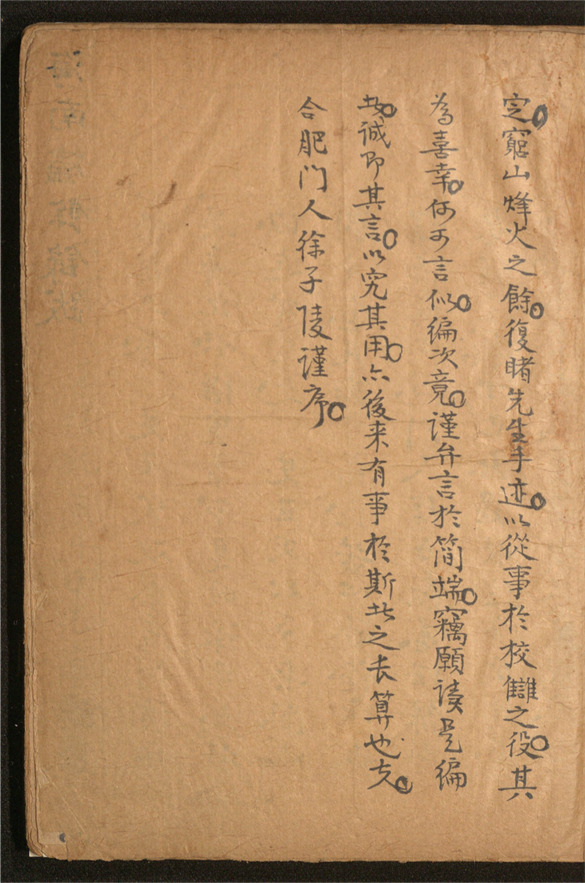 定窮山烽火之餘。復睹先生手迹。以從事於校讎之役。其
為喜幸。何可言似。編次竟。謹弁言於簡端。竊願读是編
者。誠即其言。以究其用。亦後来有事於斯者之長算也夫。
合肥门人徐子陵謹序。